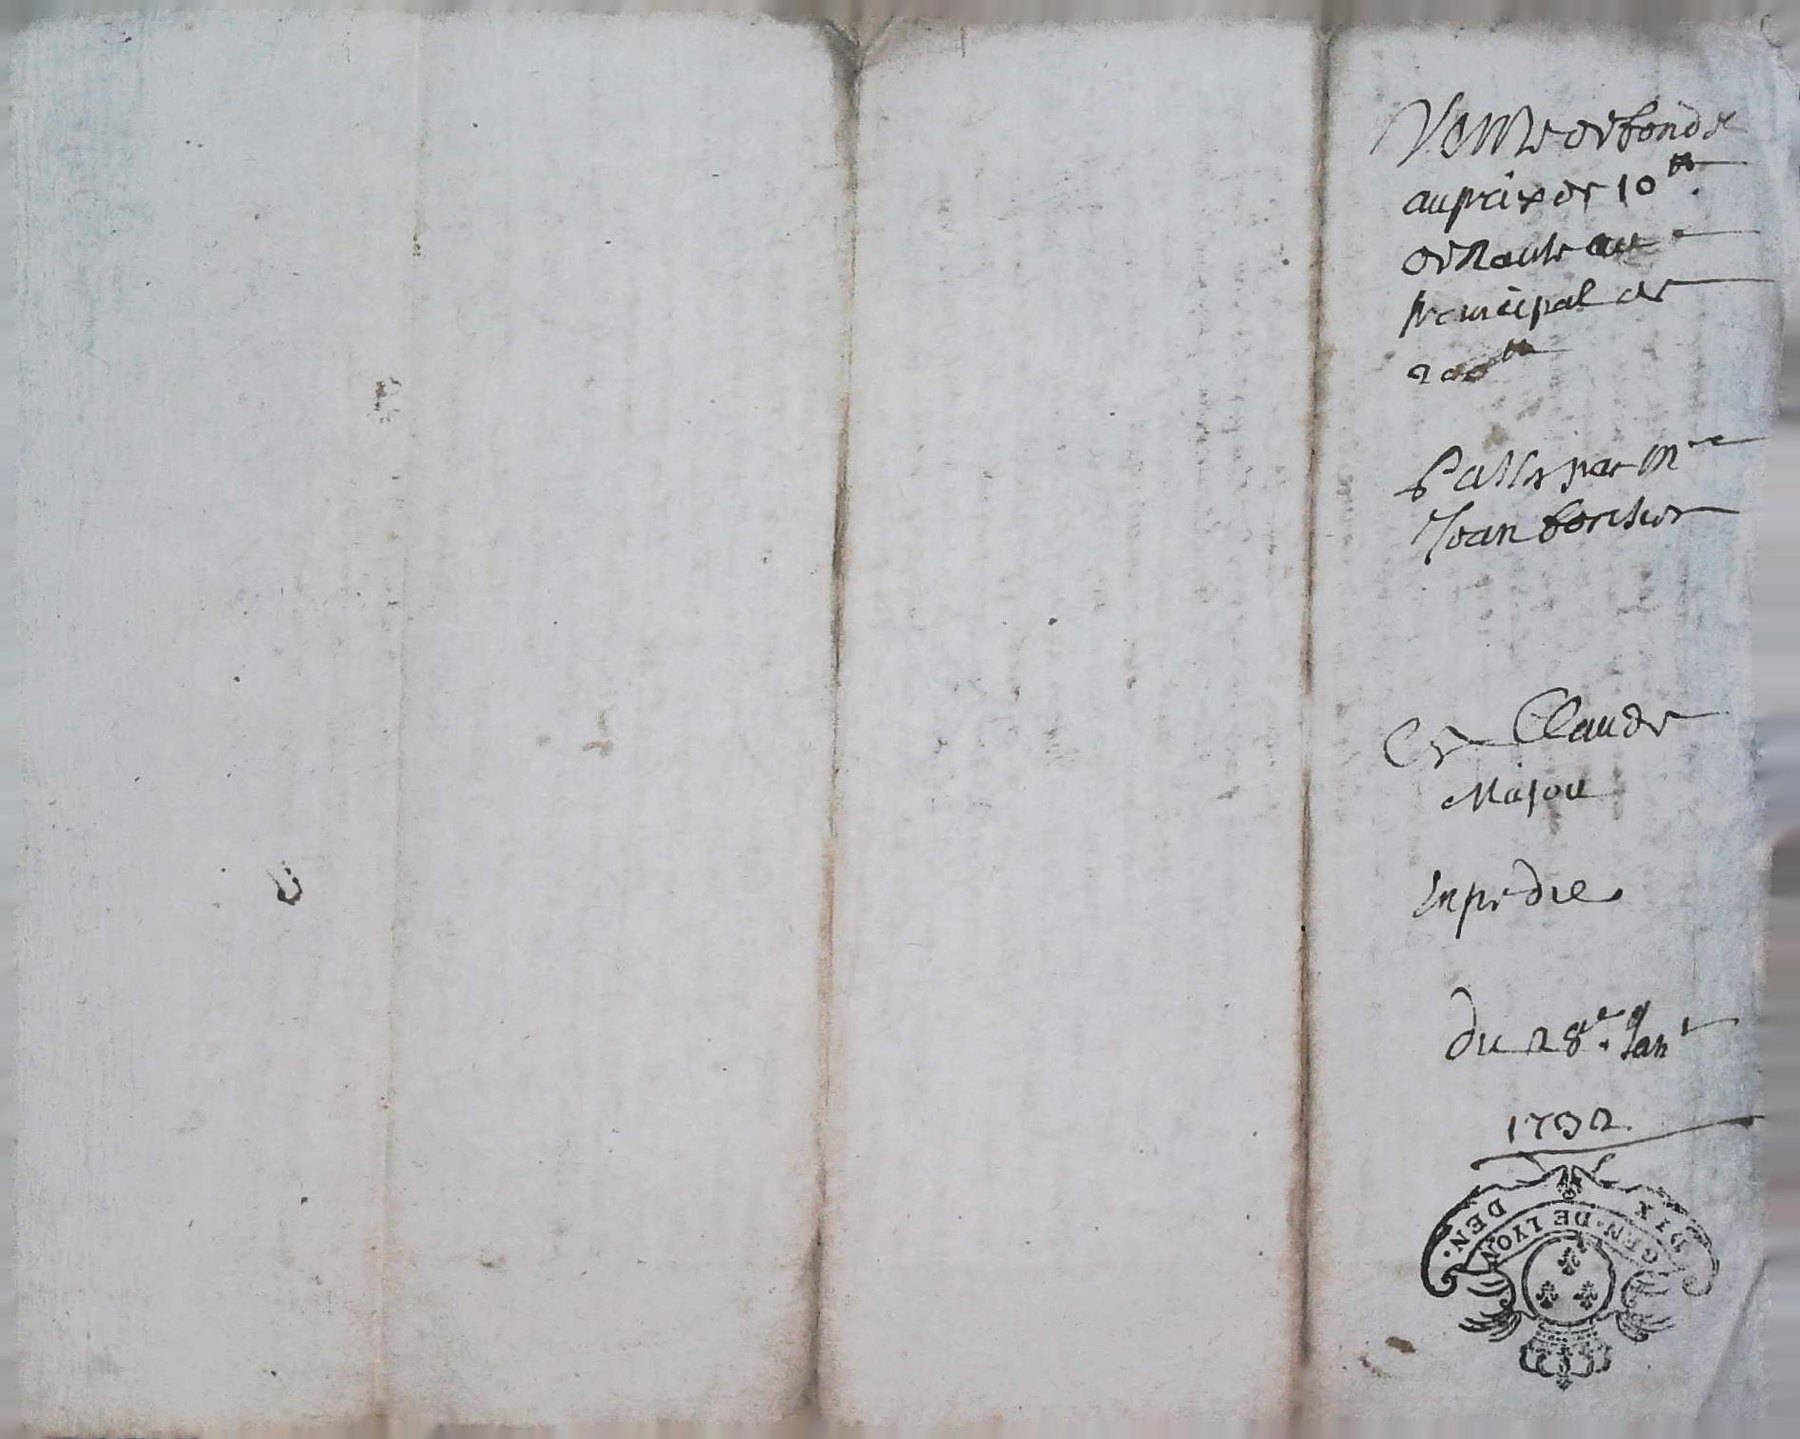 Vente de fonds
au prix de 10ᵗᵗ
de Rante au
principal de
200ᵗᵗ
Passé par Mʳᵉ
Jean
Et Claude
Majou
Expedie
du 28ᵉ Janʳ
1732
DIX DEN.
GEN. DE LYON